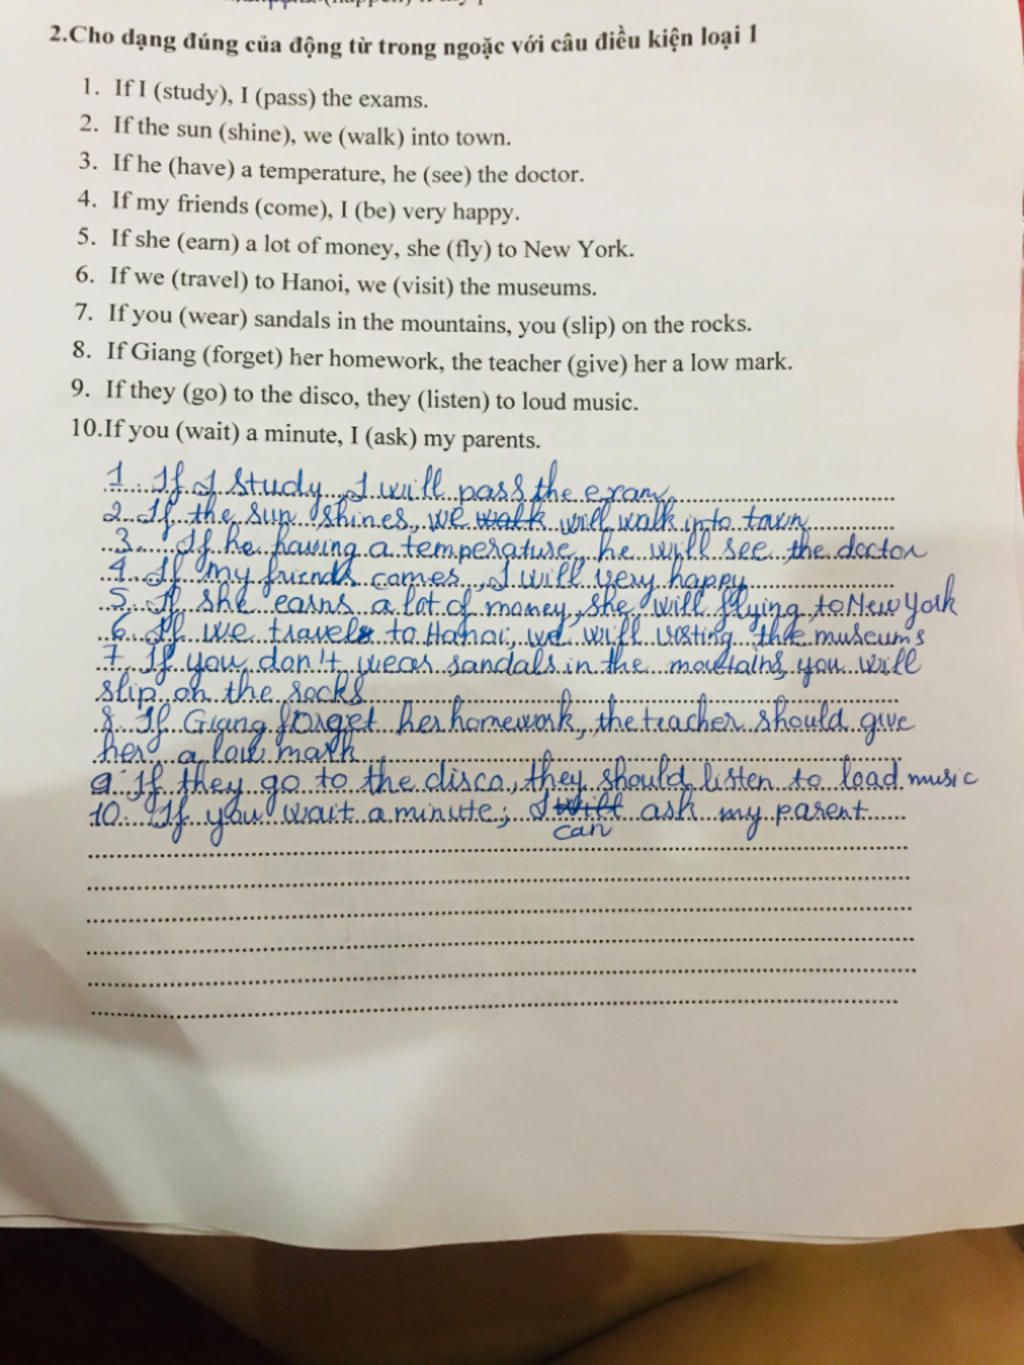 2.Cho dạng đúng của động từ trong ngoặc với câu điều kiện loại 1
1. If I (study), I (pass) the exams.
2. If the sun (shine), we (walk) into town.
3. If he (have) a temperature, he (see) the doctor.
4. If my friends (come), I (be) very happy.
5. If she (earn) a lot of money, she (fly) to New York.
6. If we (travel) to Hanoi, we (visit) the museums.
7. If you (wear) sandals in the mountains, you (slip) on the rocks.
8. If Giang (forget) her homework, the teacher (give) her a low mark.
9. If they (go) to the disco, they (listen) to loud music.
10.If you (wait) a minute, I (ask) my parents.
1. If I study, I will pass the exam,
2. If the sun shines, we walk will walk into town
3. If he having a temperature, he will see the doctor
4. If my friends comes, I will very happy
5. If she earns a lot of money, she will flying to New York
6. If we travel to Hanoi, we will visting the museums
7. If you don't wear sandals in the mountains, you will
slip on the rocks
8. If Giang forget her homework, the teacher should give
her a low mark
9. If they go to the disco, they should listen to load music
10. If you wait a minute; I will ask my parent
can